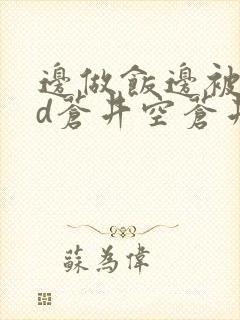 邊做飯邊被
d蒼井空蒼井
蘇為偉